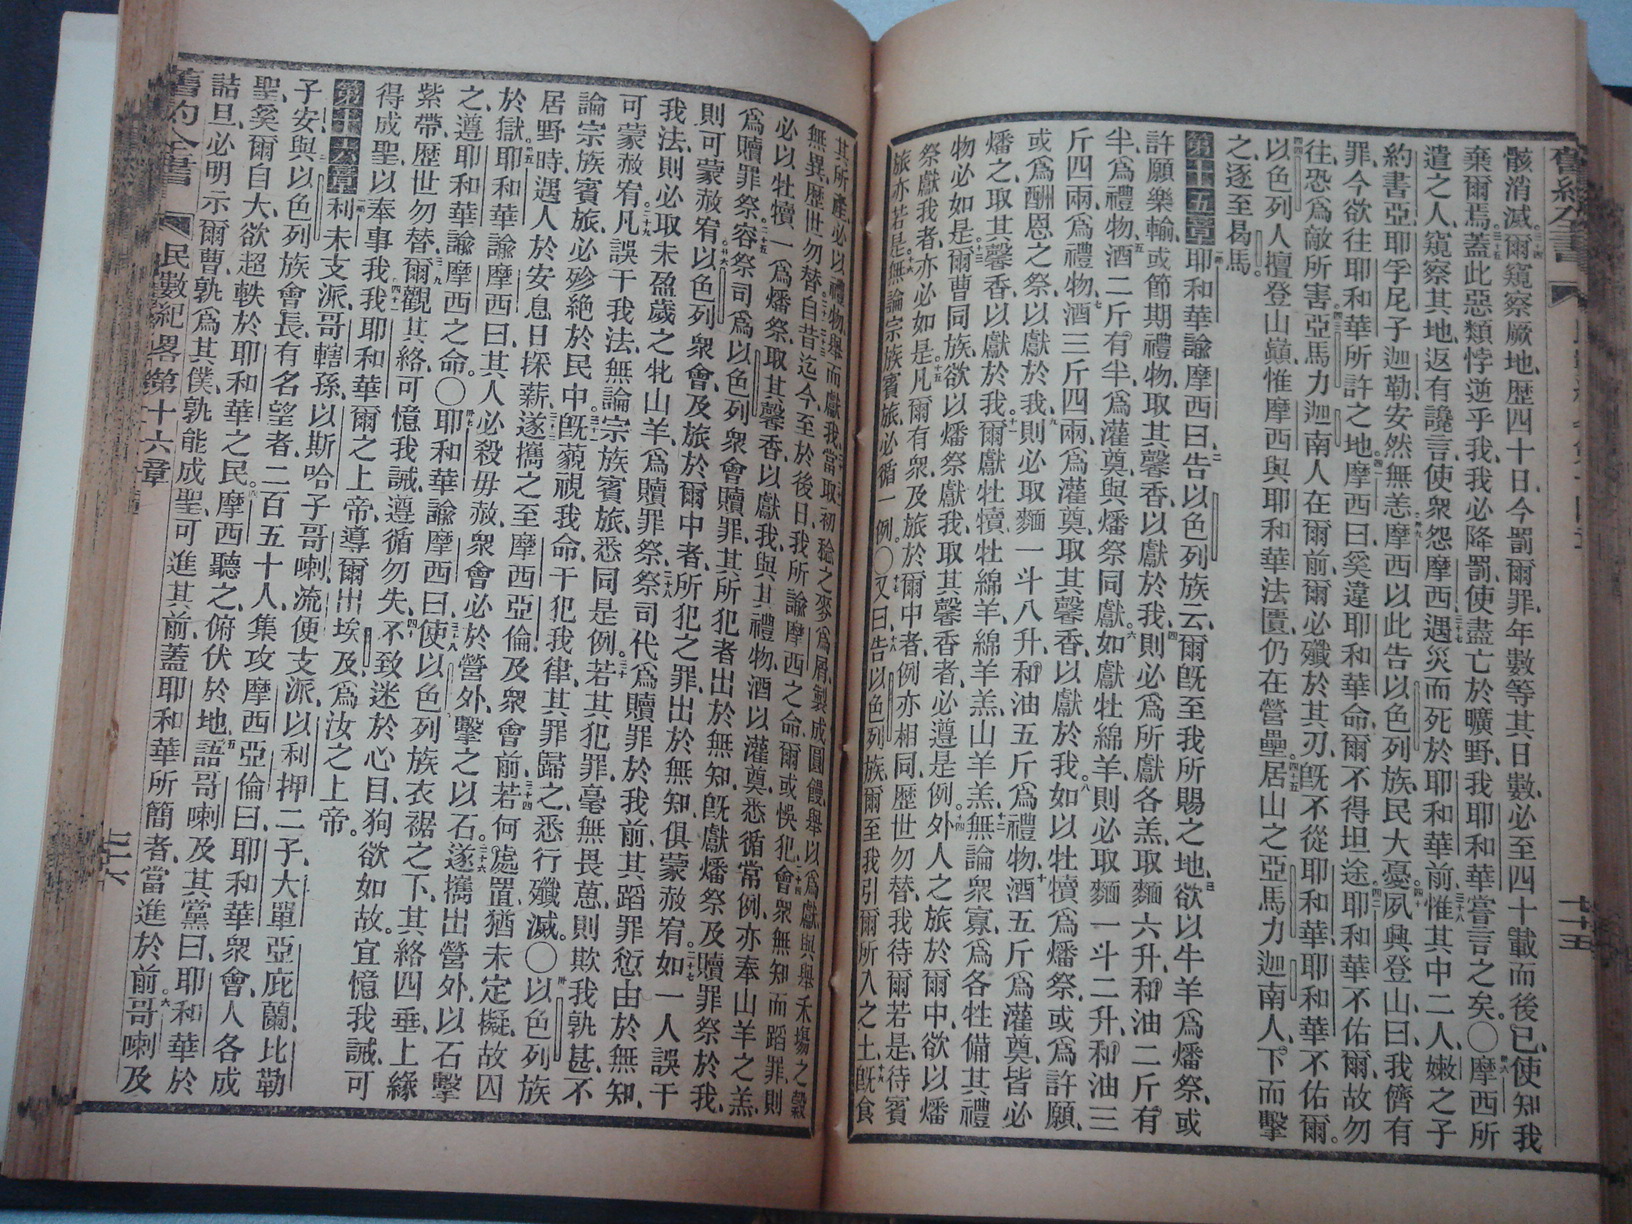 骸消滅爾窺察厥地歷四十日今罰爾罪年數等其日數必至四十載而後已使知我
棄爾焉蓋此惡類悖逆乎我我必降罰使盡亡於曠野我耶和華嘗言之矣〇摩西所
遣之人窺察其地返有讒言使衆怨摩西遇災而死於耶和華前惟其中二人嫩之子
約書亞耶孚尼子迦勒安然無恙摩西以此告以色列族民大憂夙興登山曰我儕有
罪今欲往耶和華所許之地摩西曰奚違耶和華命爾不得坦途耶和華不佑爾故勿
往恐爲敵所害亞馬力迦南人在爾前爾必殲於其刃旣不從耶和華耶和華不佑爾
以色列人擅登山巔惟摩西與耶和華法匱仍在營壘居山之亞馬力迦南人下而擊
之逐至曷馬
第十五章耶和華諭摩西曰告以色列族云爾旣至我所賜之地欲以牛羊爲燔祭或
許願樂輸或節期禮物取其馨香以獻於我則必爲所獻各羔取麵六升和油二斤有
半爲禮物酒二斤有半爲灌奠與燔祭同獻如獻牡綿羊則必取麵一斗二升和油三
斤四兩爲禮物酒三斤四兩爲灌奠取其馨香以獻於我如以牡犢爲燔祭或爲許願
或爲酬恩之祭以獻於我則必取麵一斗八升和油五斤爲禮物酒五斤爲灌奠皆必
燔之取其馨香以獻於我爾獻牡犢牡綿羊綿羊羔山羊羔無論衆寡爲各牲備其禮
物必如是爾曹同族欲以燔祭獻我取其馨香者必遵是例外人之旅於爾中欲以燔
祭獻我者亦必如是凡爾有衆及旅於爾中者例亦相同歷世勿替我待爾若是待賓
旅亦若是無論宗族賓旅必循一例〇又曰告以色列族爾至我引爾所入之土旣食
其所產必以禮物舉而獻我當取初稔之麥爲屑製成圓饅舉以爲獻與舉禾場之穀
無異歷世勿替自昔迄今至於後日我所諭摩西之命爾或悞犯會衆無知而蹈罪則
必以牡犢一爲燔祭取其馨香以獻我與其禮物酒以灌奠悉循常例亦奉山羊之羔
爲贖罪祭容祭司爲以色列衆會贖罪其所犯者出於無知旣獻燔祭及贖罪祭於我
則可蒙赦宥以色列衆會及旅於爾中者所犯之罪出於無知俱蒙赦宥如一人誤干
我法則必取未盈歲之牝山羊爲贖罪祭祭司代爲贖罪於我前其蹈罪愆由於無知
可蒙赦宥凡誤干我法無論宗族賓旅悉同是例若其犯罪毫無畏葸則欺我孰甚不
論宗族賓旅必殄絕於民中旣藐視我命干犯我律其罪歸之悉行殲滅〇以色列族
居野時遇人於安息日採薪遂擕之至摩西亞倫及衆會前若何處置猶未定擬故囚
於獄耶和華諭摩西曰其人必殺毋赦衆會必於營外擊之以石遂擕出營外以石擊
之遵耶和華諭摩西之命〇耶和華諭摩西曰使以色列族衣裾之下其綹四垂上緣
紫帶歷世勿替爾觀其綹可憶我誡遵循勿失不致迷於心目狥欲如故宜憶我誡可
得成聖以奉事我我耶和華爾之上帝導爾出埃及爲汝之上帝
第十六章利未支派哥轄孫以斯哈子哥喇流便支派以利押二子大單亞庇蘭比勒
子安與以色列族會長有名望者二百五十人集攻摩西亞倫曰耶和華衆會人各成
聖奚爾自大欲超軼於耶和華之民摩西聽之俯伏於地語哥喇及其黨曰耶和華於
詰旦必明示爾曹孰爲其僕孰能成聖可進其前蓋耶和華所簡者當進於前哥喇及
舊約全書 民數紀畧第十六章
七十五